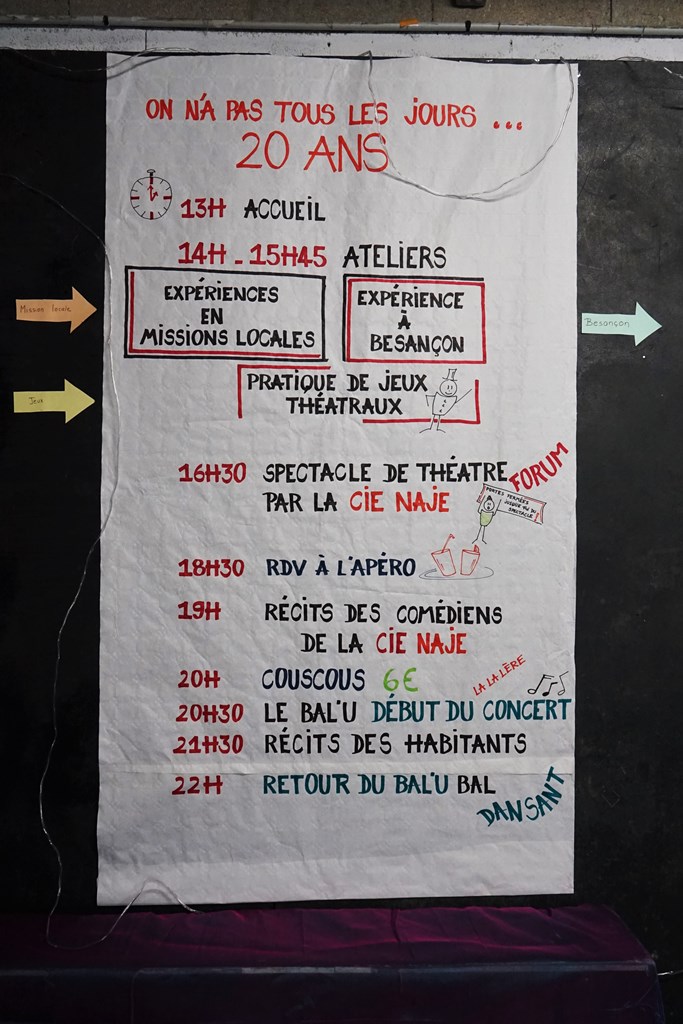 ON N'A PAS TOUS LES JOURS ...
20 ANS
13H ACCUEIL
14H - 15H45 ATELIERS
EXPÉRIENCES
EN
MISSIONS LOCALES
EXPÉRIENCE
À
BESANÇON
Mission locale
Besançon
PRATIQUE DE JEUX
THÉATRAUX
Jeux
16H30 SPECTACLE DE THÉATRE FORUM
PAR LA CIE NAJE
PORTES FERMÉES
JUSQU'AU DU
SPECTACLE
18H30 RDV À L'APÉRO
19H RÉCITS DES COMÉDIENS
DE LA CIE NAJE
20H COUSCOUS 6€
LA LA LÈRE
20H30 LE BAL'U DÉBUT DU CONCERT
21H30 RÉCITS DES HABITANTS
22H RETOUR DU BAL'U BAL
DANSANT